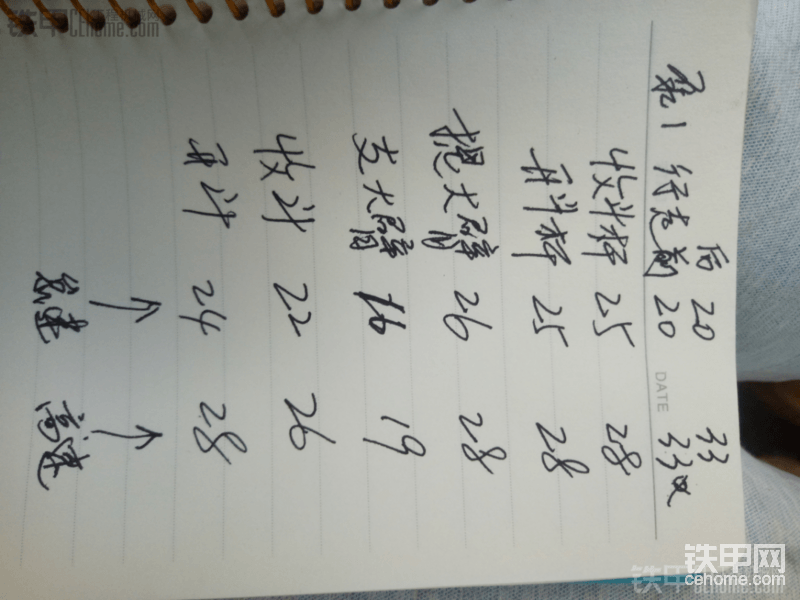 后 20 33
泵1 行走前 20 33
DATE
收斗杆 25 28
开斗杆 25 28
提大臂 26 28
支大臂 16 19
收斗 22 26
开斗 24 28
↑ ↑
怠速 高速
铁甲网
cehome.com